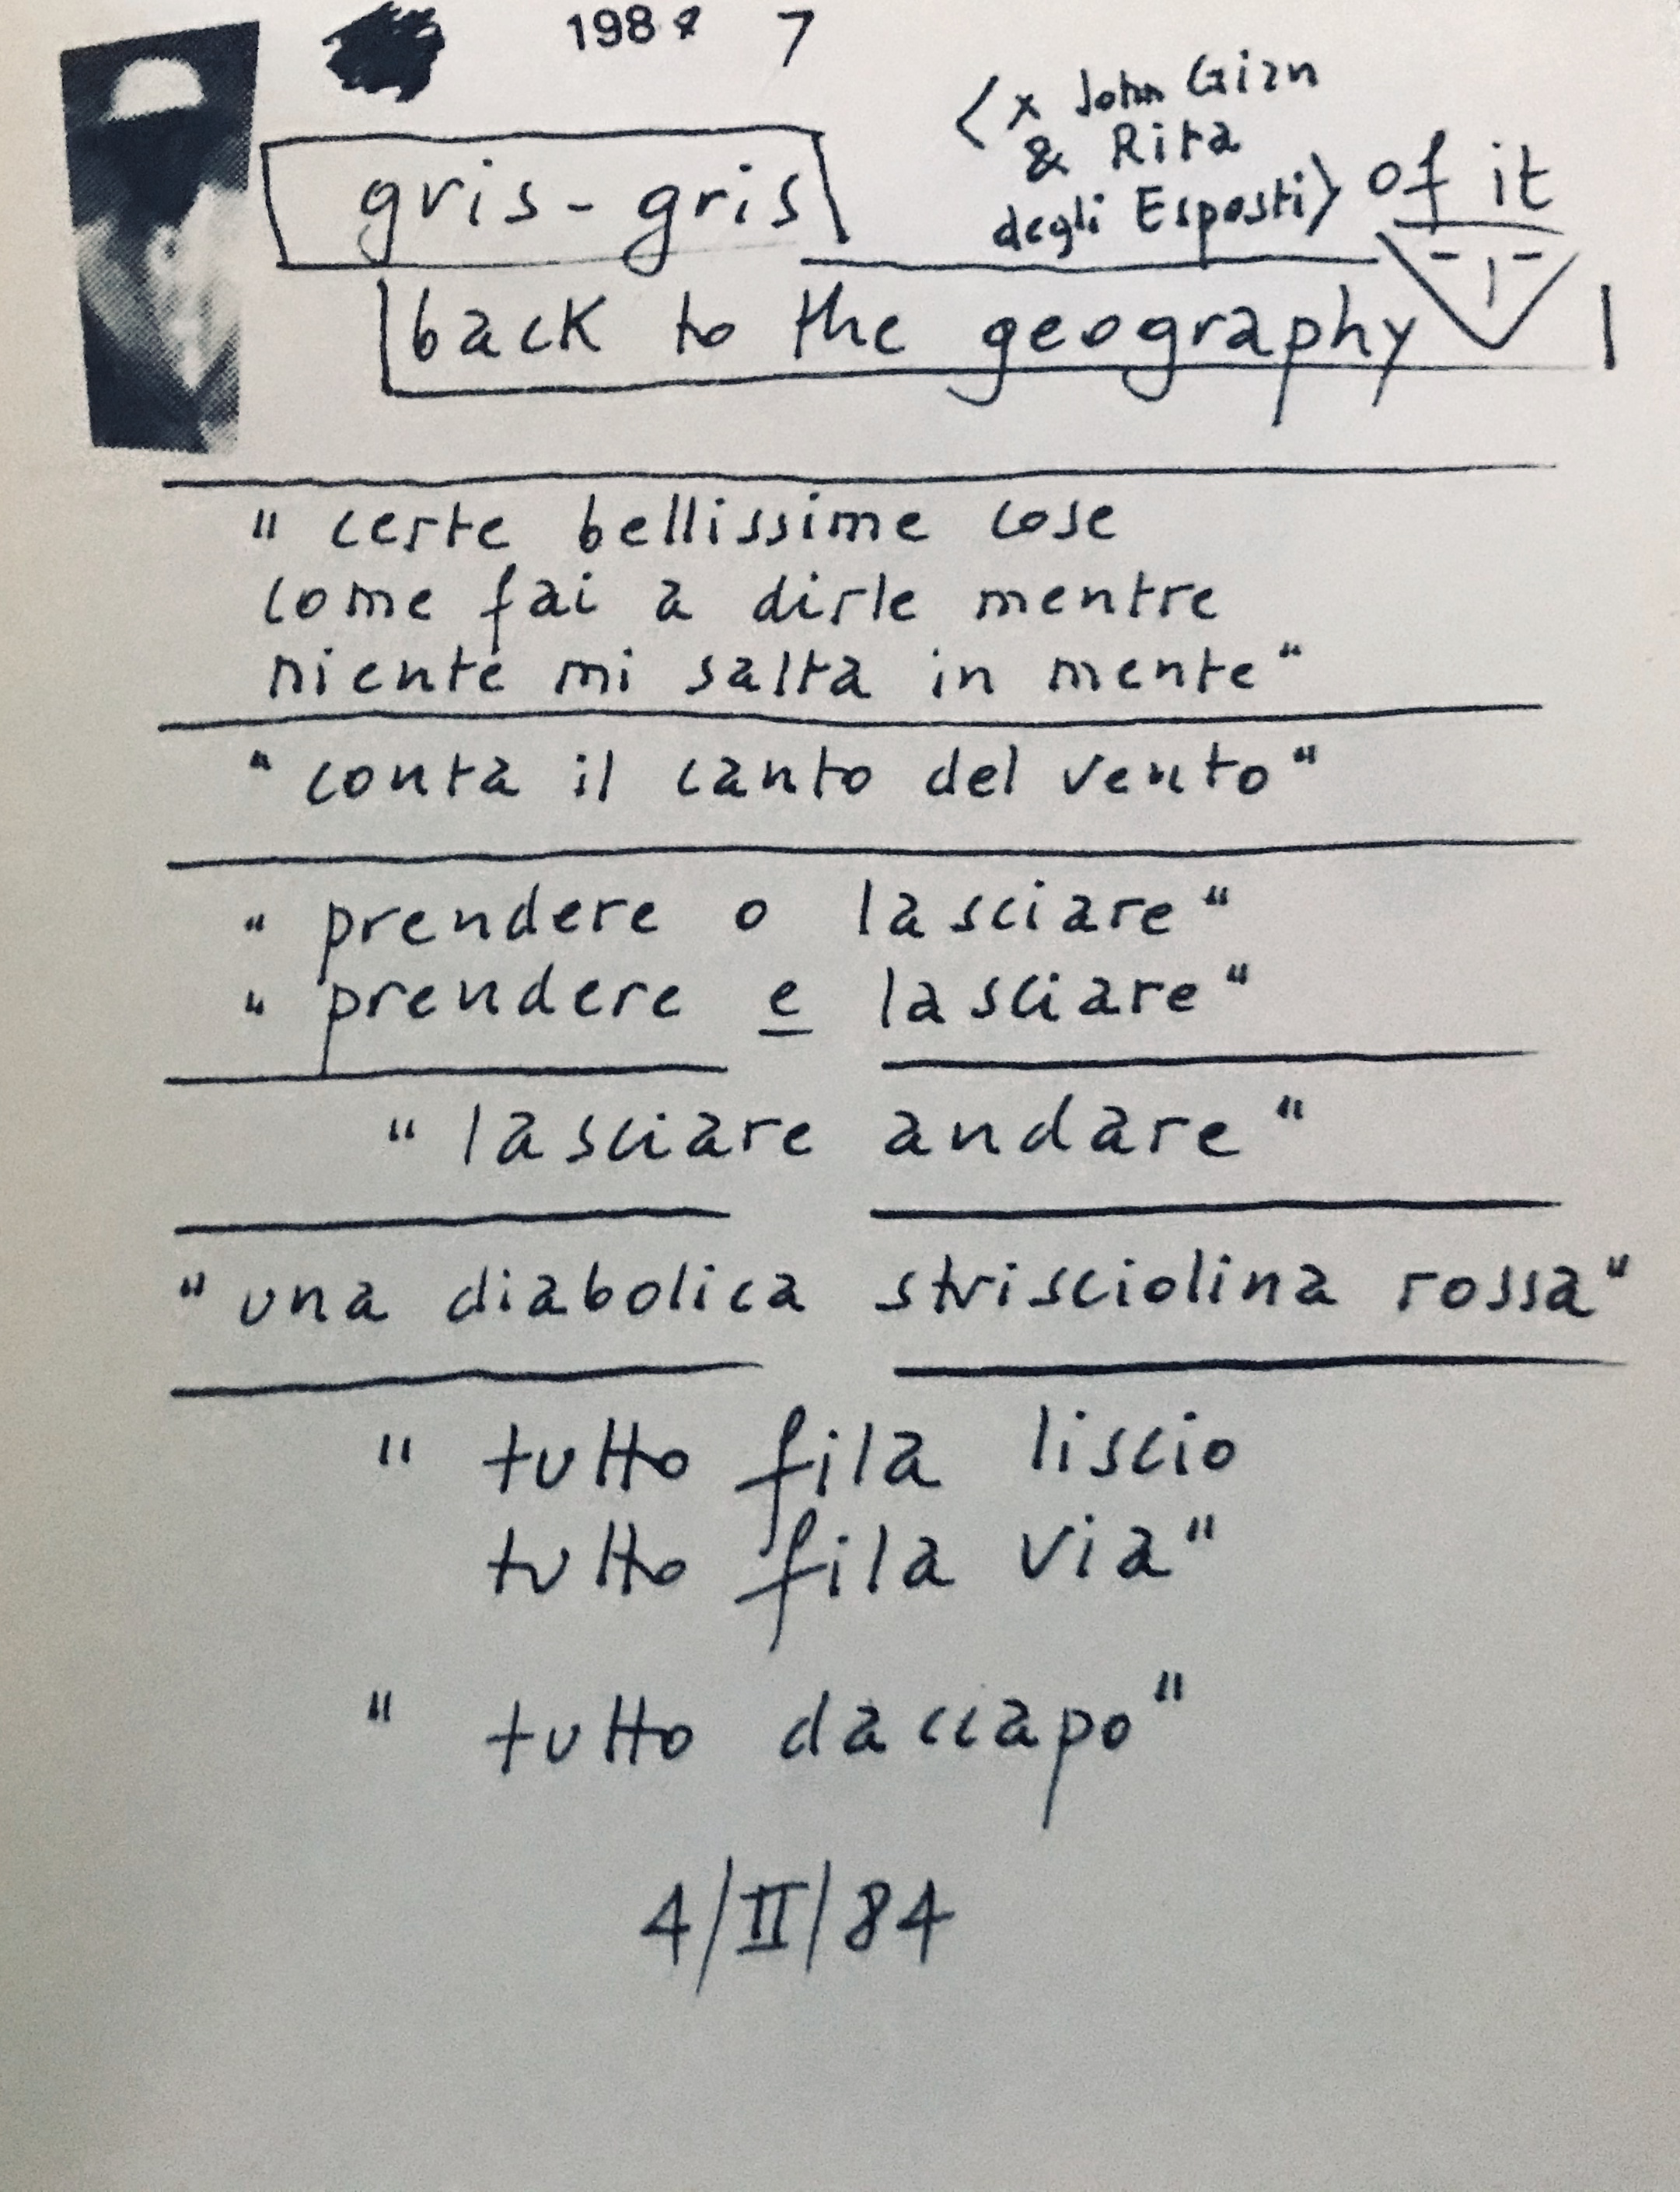 198 7
gris-gris
<x John Gian
& Rita
degli Esposti> of it
back to the geography
" certe bellissime cose
come fai a dirle mentre
niente mi salta in mente "
" conta il canto del vento "
" prendere o lasciare "
" prendere e lasciare "
" lasciare andare "
" una diabolica strisciolina rossa "
" tutto fila liscio
tutto fila via "
" tutto daccapo "
4/II/84